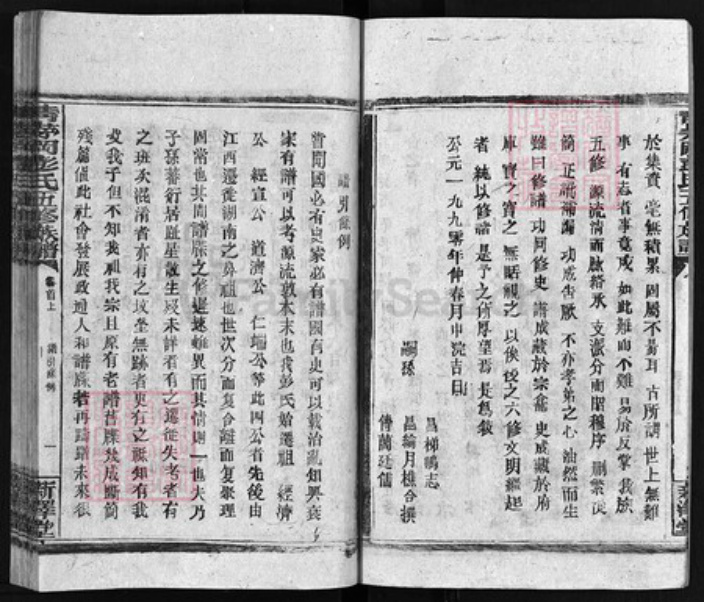 於集資 毫無積累 固屬不易耳 古所謂 世上無難
事 有志者事竟成 如此難而不難 易於反掌 我族
五修 源流清而脉絡承 支派分而昭穆序 刪繁從
簡 正訛補漏 功成告厥 不亦孝弟之心 油然而生
雖曰修譜 功同修史 譜成藏於宗龕 史成藏於府
庫 寶之寶之 無耵視之 以俟後之六修 文明繼起
者 統以修譜 是予之所厚望焉 是為敘
公元一九九零年仲春月中浣吉日
嗣孫
昌梯鵬志
昌綸月樵合撰
傳蘭廷儒
譜引條例
嘗聞國必有史家必有譜國有史可以載治亂知興衰
家有譜可以考源流敦本末也我彭氏始遷祖 經濟
公 經宣公 道濟公 仁瑞公等此四公者先後由
江西遷徙湖南之鼻祖也世次分而復合離而復聚理
固常也其間譜牒之修遲速雖異而其情則一也夫乃
子孫蕃衍居趾星散生歿未詳者有之遷徙失考者有
之班次混淆者亦有之墳塋無跡者更有之祇知有我
父我子但不知我祖我宗且原有老譜舊牒焚成斷簡
殘篇值此社會發展政通人和譜牒若再躊躇未來很
彭氏五修族譜
卷首上
譜引條例
一